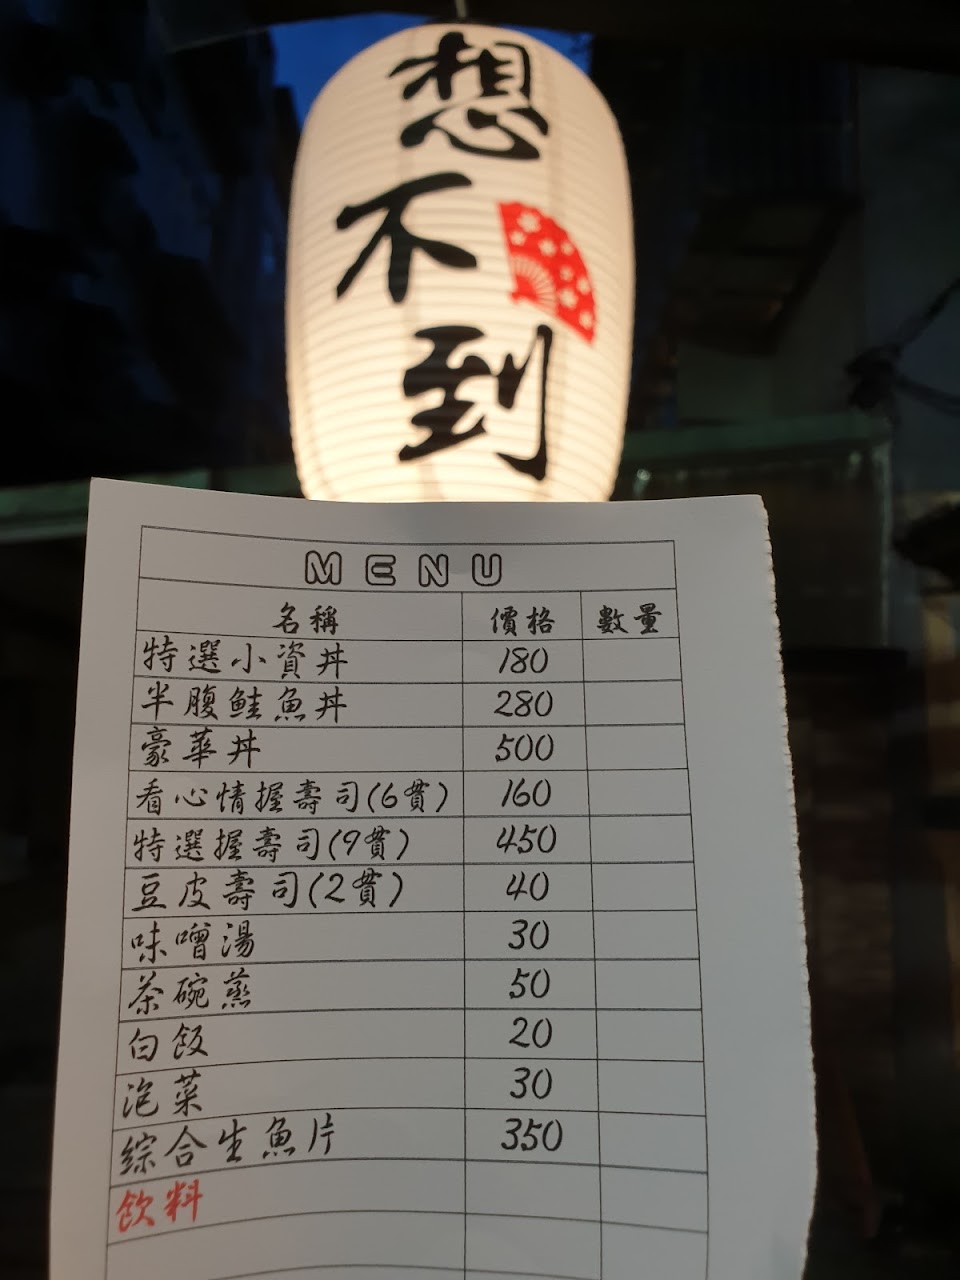 想不到
MENU
名稱 價格 數量
特選小資丼 180
半腹鮭魚丼 280
豪華丼 500
看心情握壽司(6貫) 160
特選握壽司(9貫) 450
豆皮壽司(2貫) 40
味噌湯 30
茶碗蒸 50
白飯 20
泡菜 30
綜合生魚片 350
飲料